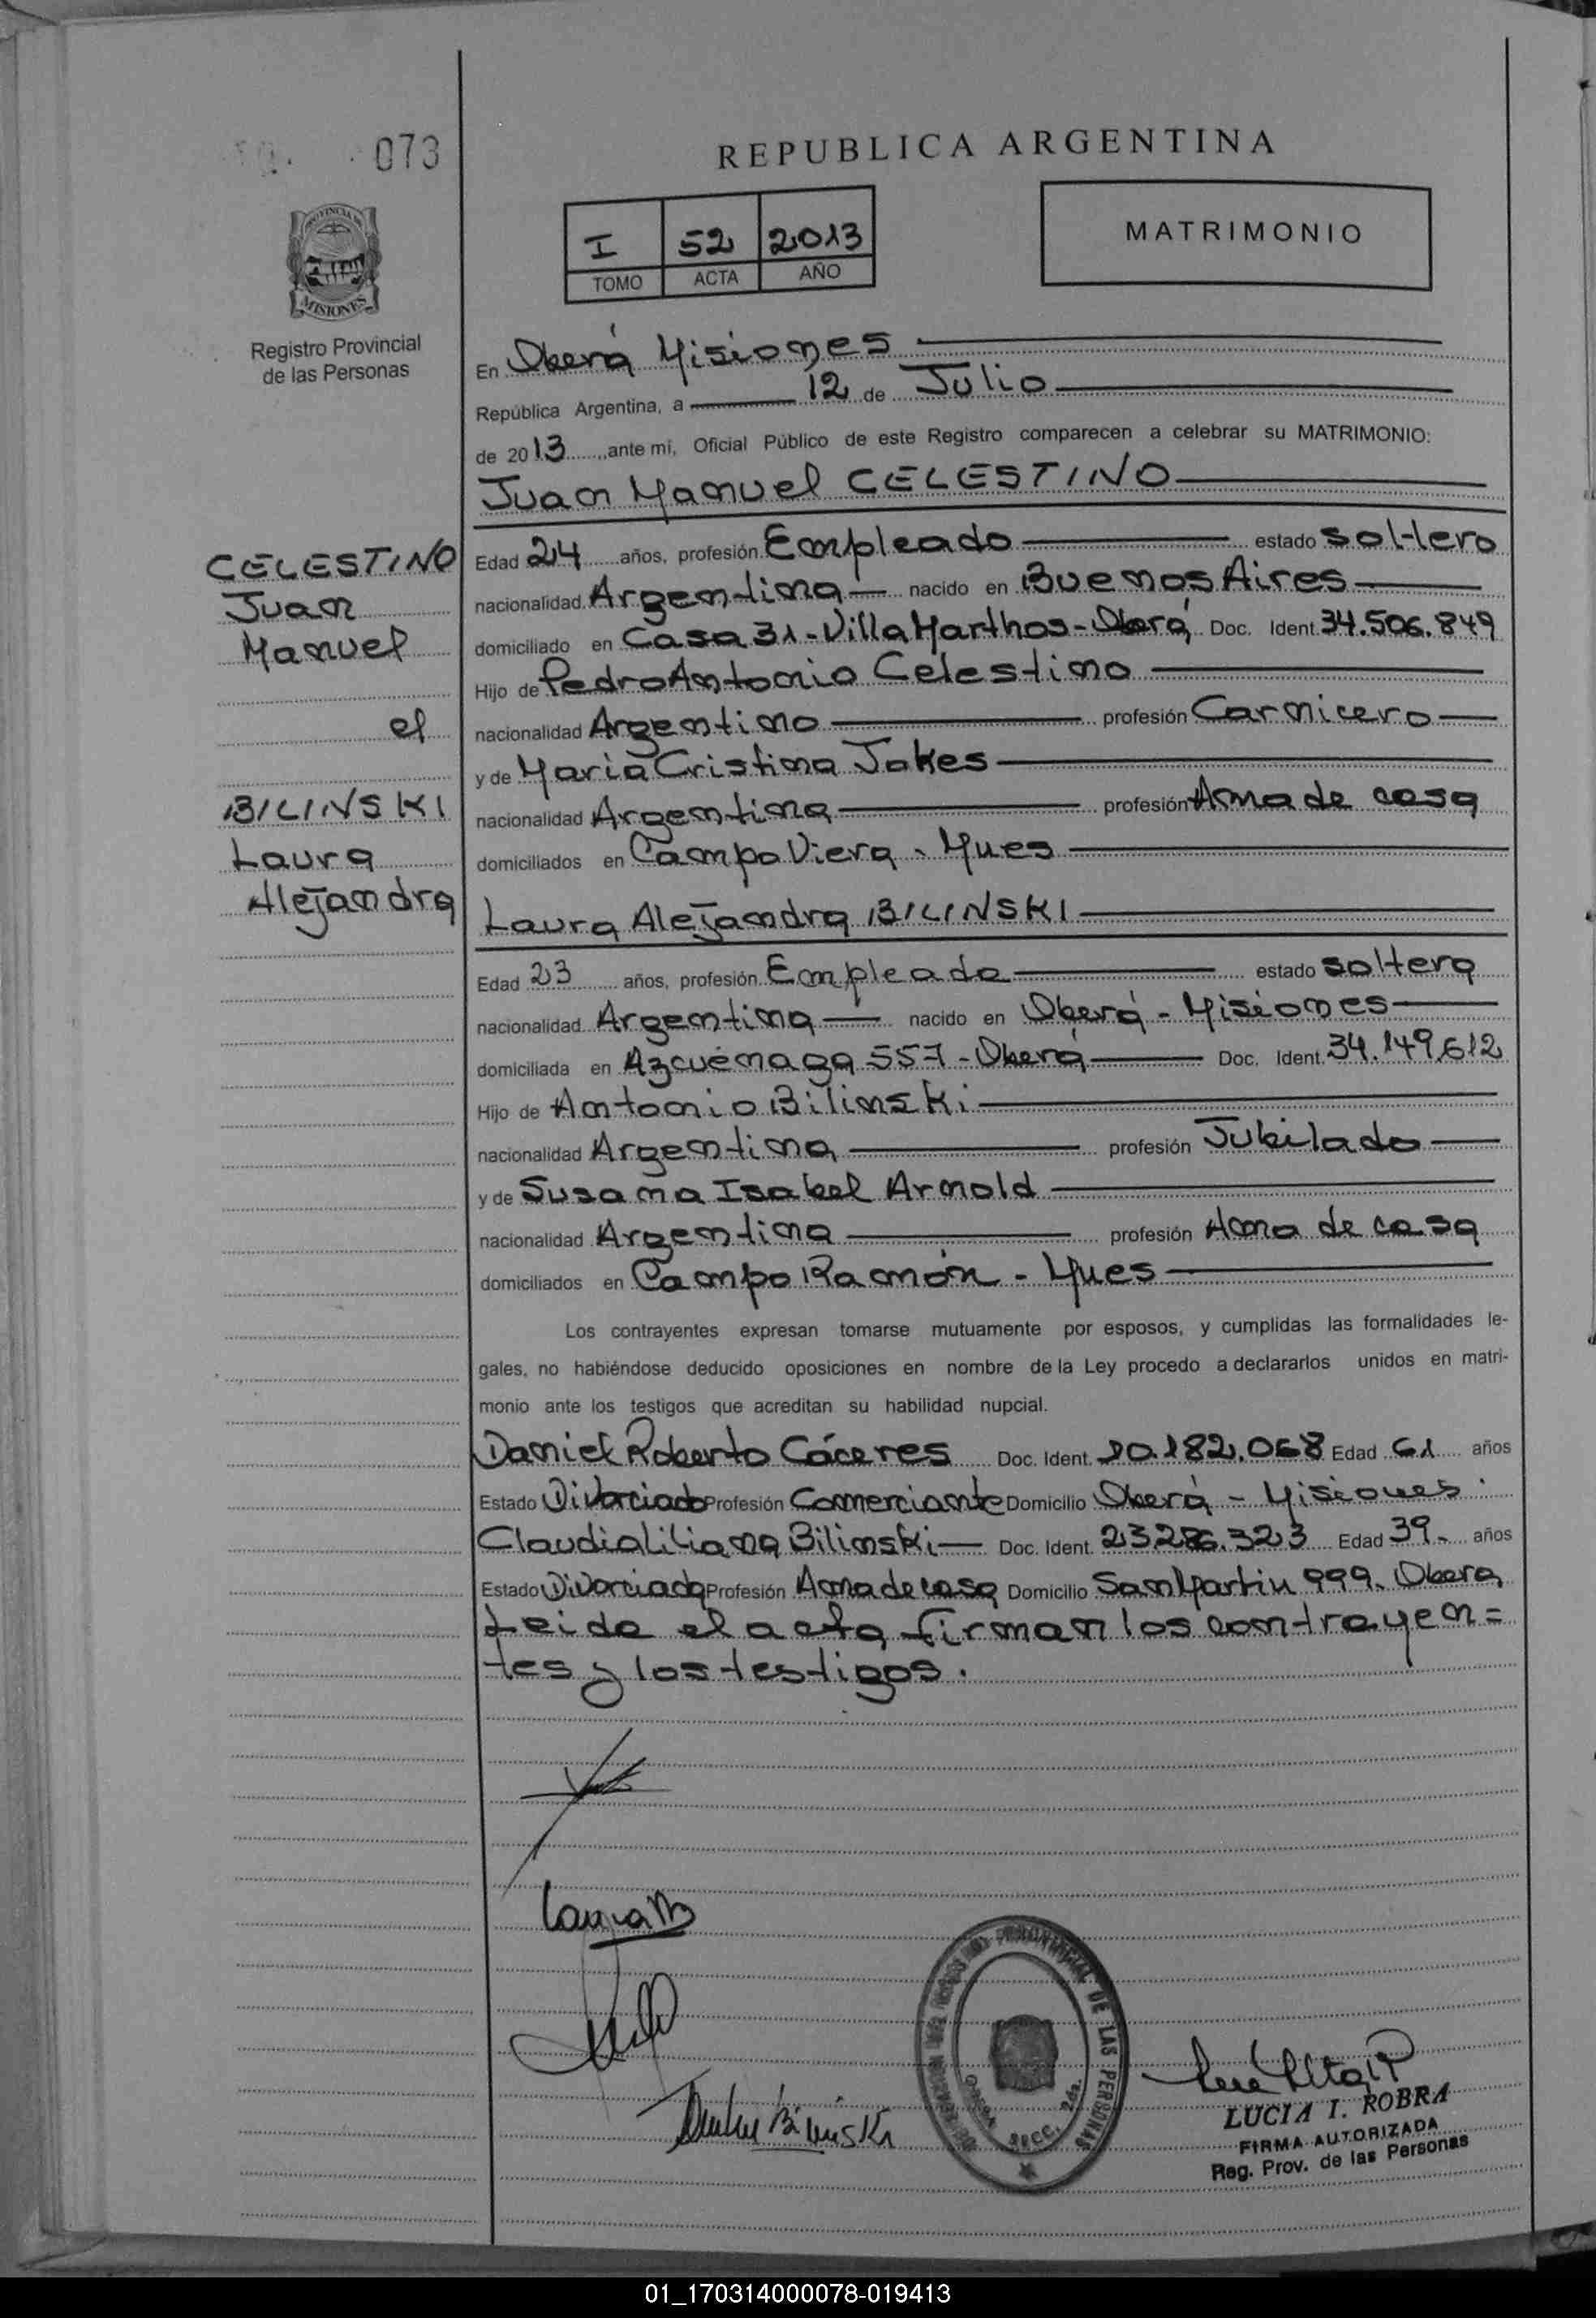 073
REPUBLICA ARGENTINA
I 52 2013
TOMO ACTA AÑO
MATRIMONIO
PROVINCIA DE
MISIONES
Registro Provincial
de las Personas
En Oberá Misiones
República Argentina, a 12 de Julio
de 2013 ante mi, Oficial Público de este Registro comparecen a celebrar su MATRIMONIO:
Juan Manuel CELESTINO
CELESTINO
Juan
Manuel
el
BILINSKI
Laura
Alejandra
Edad 24 años, profesión Empleado estado soltero
nacionalidad Argentina nacido en Buenos Aires
domiciliado en Casa 31-Villa Marthos-Oberá Doc. Ident. 34.506.849
Hijo de Pedro Antonio Celestino
nacionalidad Argentino profesión Carnicero
y de María Cristina Jakes
nacionalidad Argentina profesión Ama de casa
domiciliados en Campo Viera - Mnes
Laura Alejandra BILINSKI
Edad 23 años, profesión Empleada estado soltera
nacionalidad Argentina nacido en Oberá - Misiones
domiciliada en Azcuénaga 557 - Oberá Doc. Ident. 34.149.612
Hijo de Antonio Bilinski
nacionalidad Argentina profesión Jubilado
y de Susana Isabel Arnold
nacionalidad Argentina profesión Ama de casa
domiciliados en Campo Ramón - Mnes
Los contrayentes expresan tomarse mutuamente por esposos, y cumplidas las formalidades le-
gales, no habiéndose deducido oposiciones en nombre de la Ley procedo a declararlos unidos en matri-
monio ante los testigos que acreditan su habilidad nupcial.
Daniel Roberto Cáceres Doc. Ident. 10.182.068 Edad 61 años
Estado Divorciado Profesión Comerciante Domicilio Oberá - Misiones
Claudia Liliana Bilinski Doc. Ident. 23.286.323 Edad 39 años
Estado Divorciada Profesión Ama de casa Domicilio San Martin 999. Oberá
Leida el acta firman los contrayen=
tes y los testigos.
Laura B
Bilinski
PROVINCIAL DE LAS PERSONAS
SECC. 2da.
LUCIA I. ROBRA
FIRMA AUTORIZADA
Reg. Prov. de las Personas
01_170314000078-019413